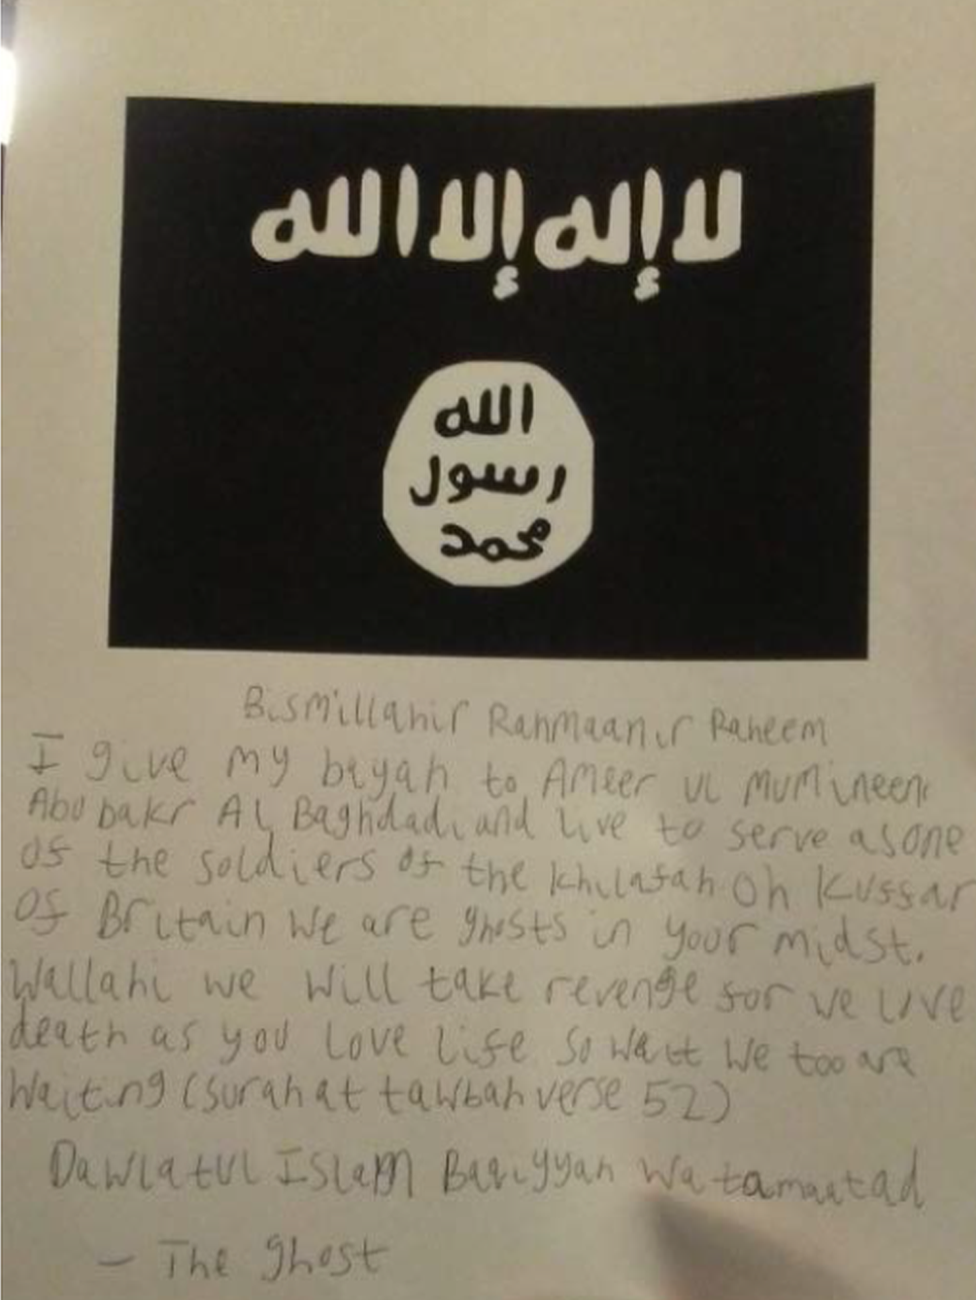 لا إله إلا الله
الله
رسول
محمد
Bismillahir Rahmaanir Raheem
I give my bayah to Ameer ul mumineen
Abu bakr Al Baghdadi and live to serve as one
of the soldiers of the khilafah oh Kuffar
of Britain We are ghosts in your midst.
Wallahi we will take revenge for we love
death as you love life so wait We too are
Waiting (surah at tawbah verse 52)
Dawlatul Islam Baqiyyah wa tamaatad
- The ghost